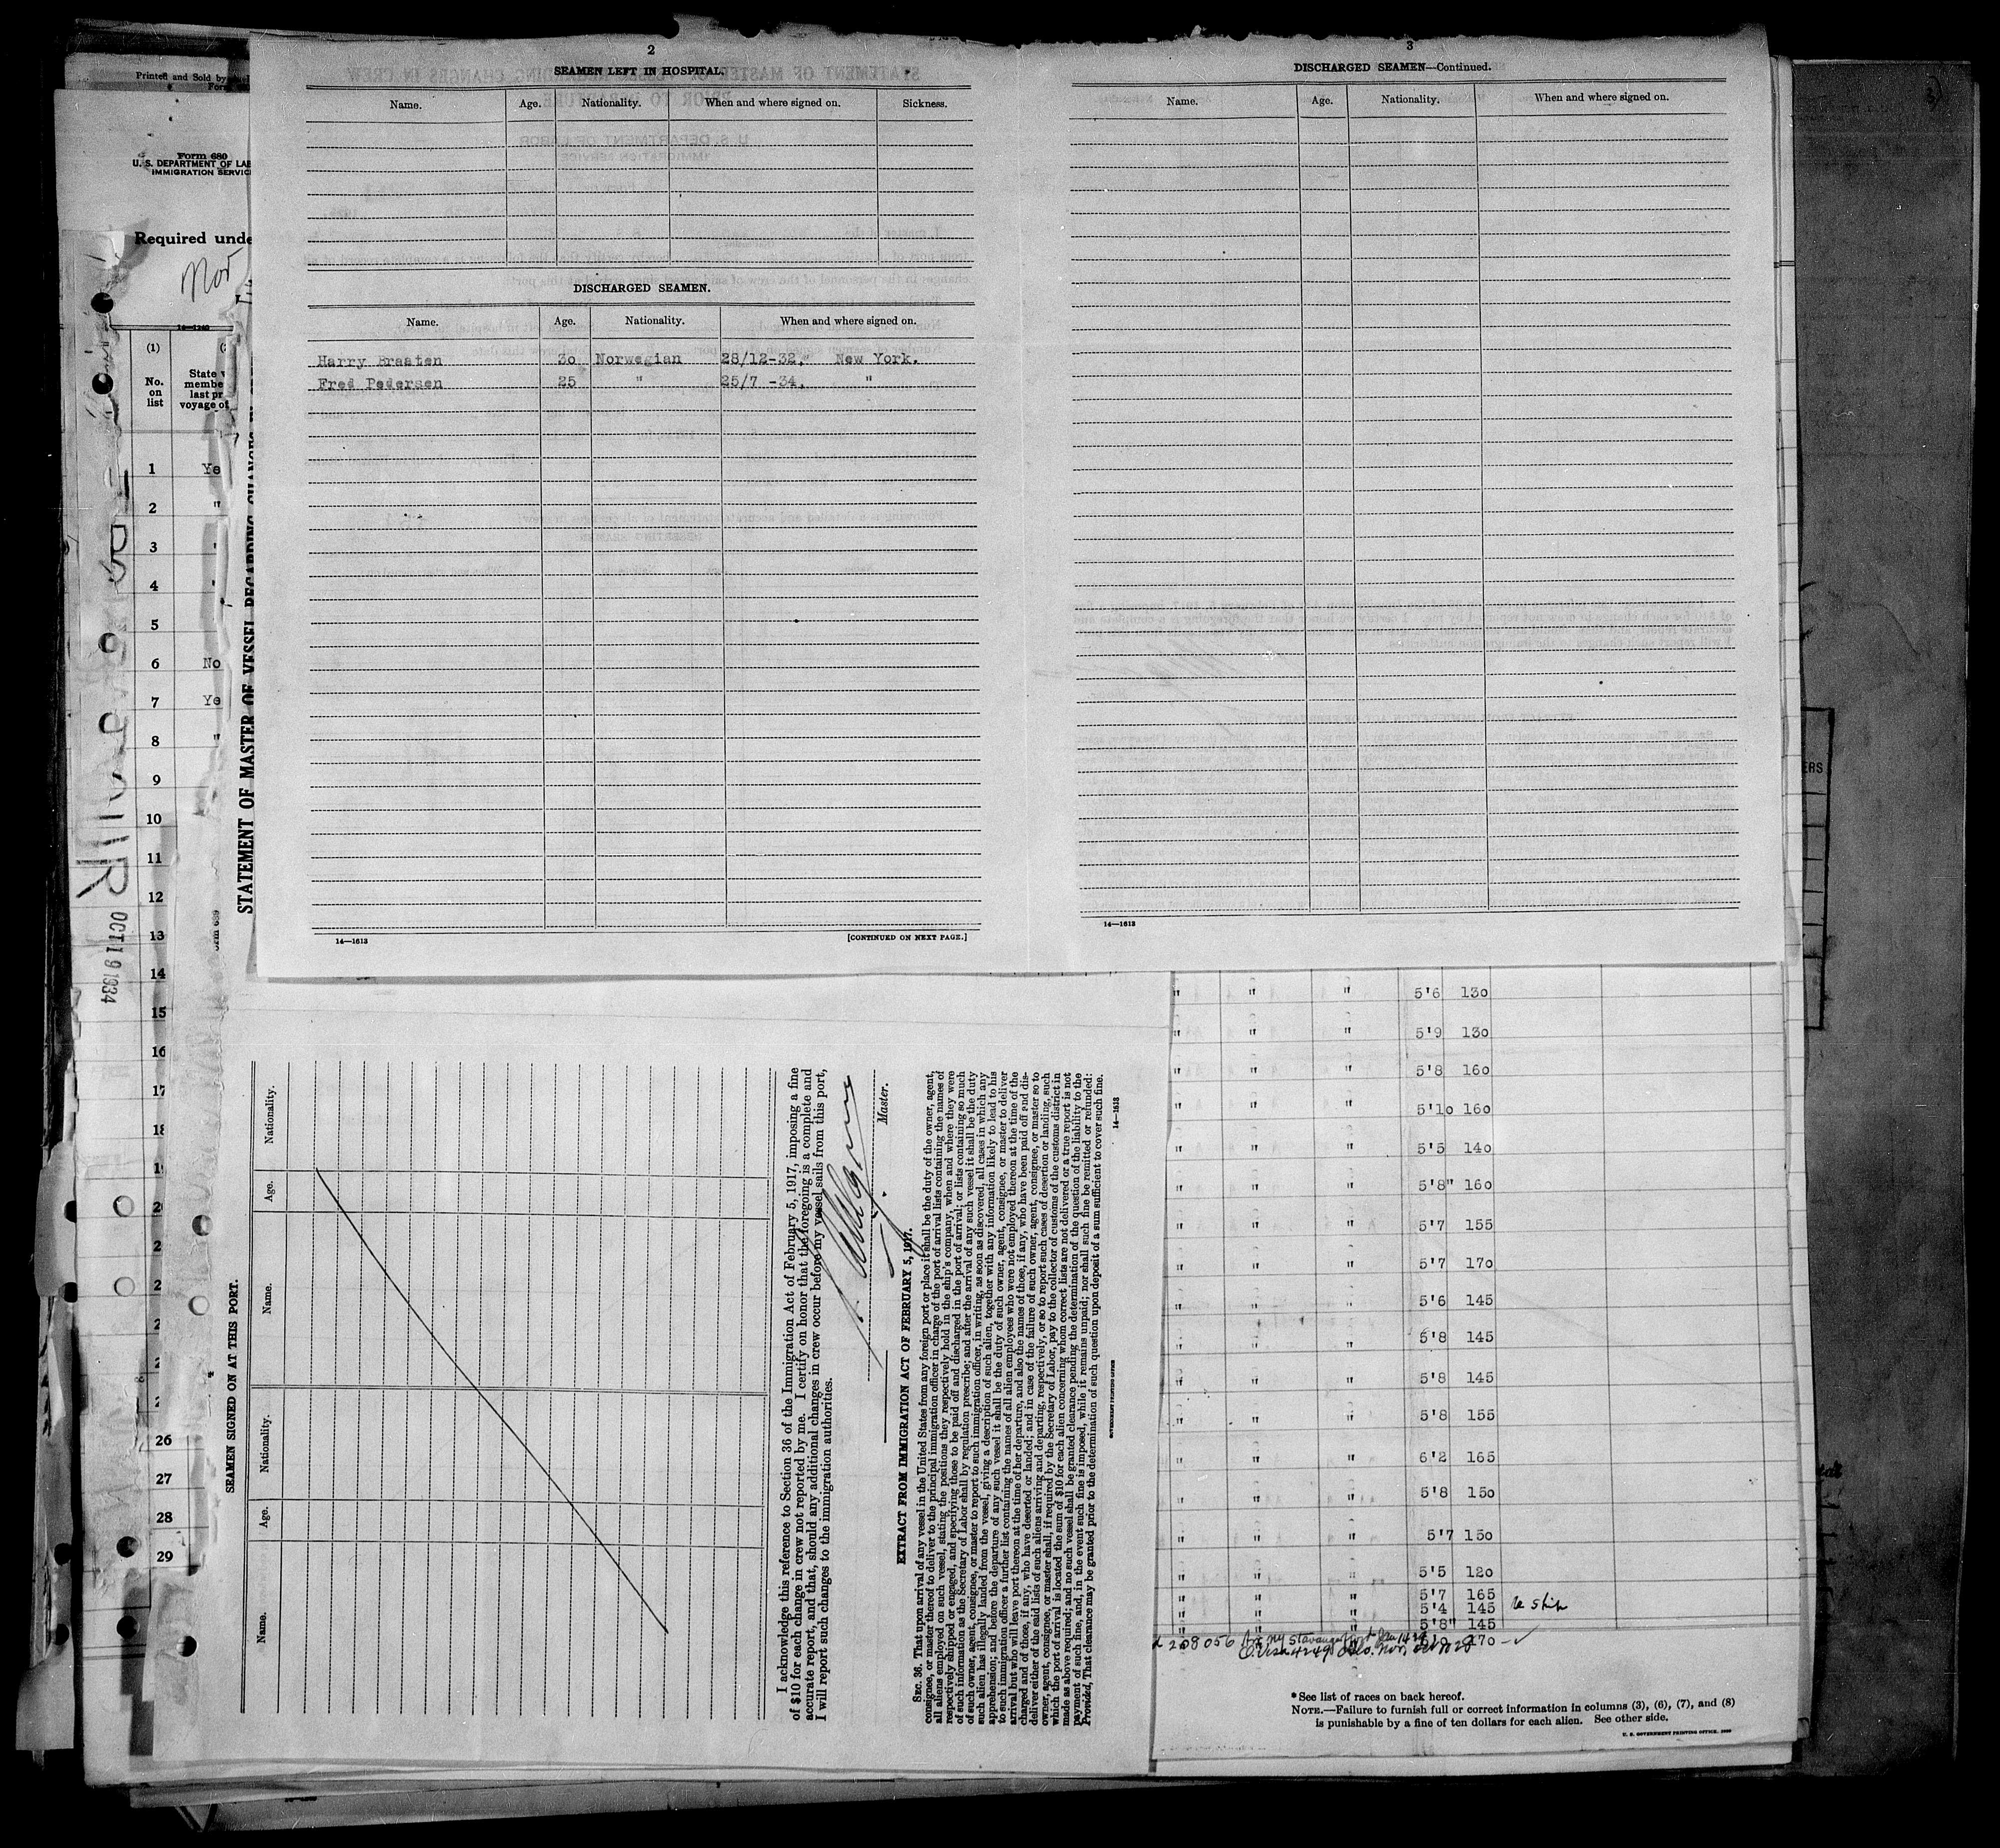 2
SEAMEN LEFT IN HOSPITAL.
Name. Age. Nationality. When and where signed on. Sickness.
DISCHARGED SEAMEN.
Name. Age. Nationality. When and where signed on.
Harry Braaten 30 Norwegian 28/12-32, New York.
Fred Pedersen 25 " 25/7 -34, "
14—1613
[CONTINUED ON NEXT PAGE.]
3
DISCHARGED SEAMEN—Continued.
Name. Age. Nationality. When and where signed on.
14—1613
Printed and Sold by
Form 680
U. S. DEPARTMENT OF LAB
IMMIGRATION SERVIC
Required unde
Nor
14—1240
(1)
No. on list
State
membe
last pr
voyage of
1 Ye
2 "
3
4
5
6 No
7 Ye
8 "
9
10
11
12
13
14
15
16
17
18
26
27
28
29
OCT 19 1934
STATEMENT OF MASTER OF VESSEL REGARDING CHANGES
SEAMEN SIGNED ON AT THIS PORT.
Name. Age. Nationality. Name. Age. Nationality.
I acknowledge this reference to Section 36 of the Immigration Act of February 5, 1917, imposing a fine
of $10 for each change in crew not reported by me. I certify on honor that the foregoing is a complete and
accurate report, and that, should any additional changes in crew occur before my vessel sails from this port,
I will report such changes to the immigration authorities.
Master.
EXTRACT FROM IMMIGRATION ACT OF FEBRUARY 5, 1917.
SEC. 36. That upon arrival of any vessel in the United States from any foreign port or place it shall be the duty of the owner, agent,
consignee, or master thereof to deliver to the principal immigration officer in charge of the port of arrival lists containing the names of
all aliens employed on such vessel, stating the positions they respectively hold in the ship's company, when and where they were
respectively shipped or engaged, and specifying those to be paid off and discharged in the port of arrival; or lists containing so much
of such information as the Secretary of Labor shall by regulation prescribe; and after the arrival of any such vessel it shall be the duty
of such owner, agent, consignee, or master to report to such immigration officer, in writing, as soon as discovered, all cases in which any
such alien has illegally landed from the vessel, giving a description of such alien, together with any information likely to lead to his
apprehension; and before the departure of any such vessel it shall be the duty of such owner, agent, consignee, or master to deliver
to such immigration officer a further list containing the names of all alien employees who were not employed thereon at the time of the
arrival but who will leave port thereon at the time of her departure, and also the names of those, if any, who have been paid off and dis-
charged and of those, if any, who have deserted or landed; and in case of the failure of such owner, agent, consignee, or master so to
deliver either of the said lists of such aliens arriving and departing, respectively, or so to report such cases of desertion or landing, such
owner, agent, consignee, or master shall, if required by the Secretary of Labor, pay to the collector of customs of the customs district in
which the port of arrival is located the sum of $10 for each alien concerning whom correct lists are not delivered or a true report is not
made as above required; and no such vessel shall be granted clearance pending the determination of the question of the liability to the
payment of such fine, and, in the event such fine is imposed, while it remains unpaid; nor shall such fine be remitted or refunded:
Provided, That clearance may be granted prior to the determination of such question upon deposit of a sum sufficient to cover such fine.
14—1613
" " " 5'6 130
" " " 5'9 130
" " " 5'8 160
" " " 5'10 160
" " " 5'5 140
" " " 5'8" 160
" " " 5'7 155
" " " 5'7 170
" " " 5'6 145
" " " 5'8 145
" " " 5'8 145
" " " 5'8 155
" " " 6'2 165
" " " 5'8 150
" " " 5'7 150
" " " 5'5 120
" " " 5'7 165
" " " 5'4 145
" " " 5'8" 145
208056 170
*See list of races on back hereof.
NOTE.—Failure to furnish full or correct information in columns (3), (6), (7), and (8)
is punishable by a fine of ten dollars for each alien. See other side.
U. S. GOVERNMENT PRINTING OFFICE
ERS